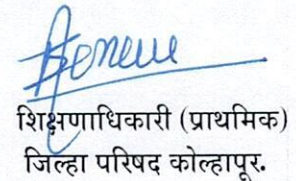 शिक्षणाधिकारी (प्राथमिक)
जिल्हा परिषद कोल्हापूर.